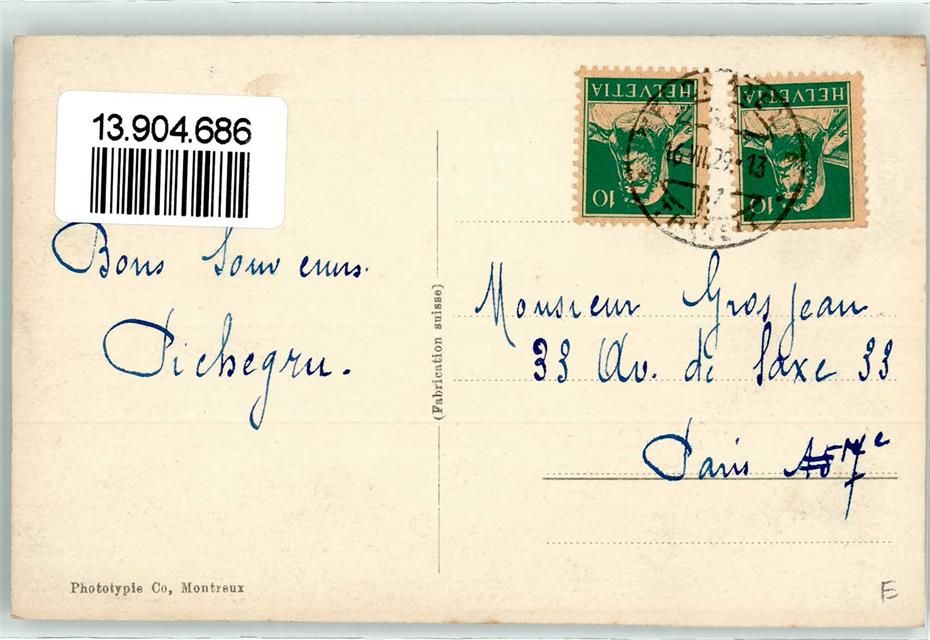 13.904.686
HELVETIA
10
HELVETIA
10
Bons Souvenirs.
Pichegru.
(Fabrication suisse)
Monsieur Grosjean
33 Av. de Saxe 33
Paris 7e
Phototypie Co, Montreux
E